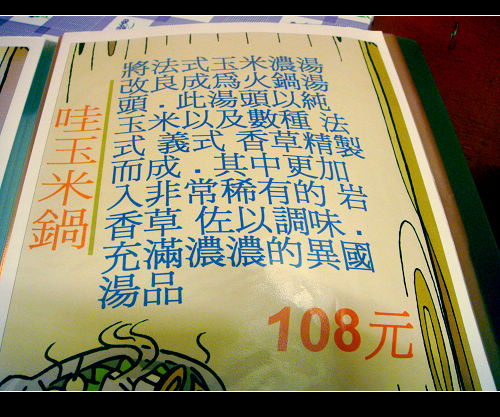 哇玉米鍋
將法式玉米濃湯
改良成為火鍋湯
頭．此湯頭以純
玉米以及數種 法
式 義式 香草精製
而成．其中更加
入非常稀有的 岩
香草 佐以調味．
充滿濃濃的異國
湯品
108元